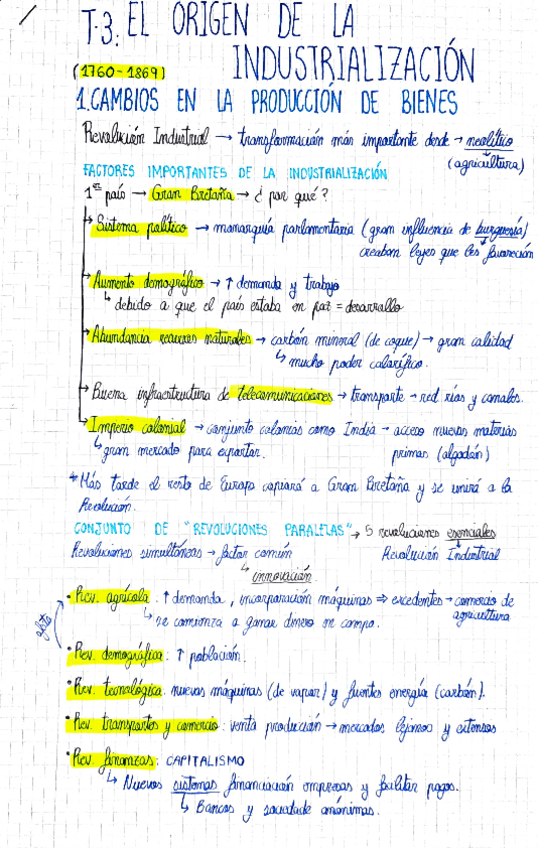 T.3. EL ORIGEN DE LA
INDUSTRIALIZACIÓN
(1760-1869)
1. CAMBIOS EN LA PRODUCCIÓN DE BIENES
Revolución Industrial → transformación más importante desde → neolítico
(agricultura)
FACTORES IMPORTANTES DE LA INDUSTRIALIZACIÓN
1er país → Gran Bretaña → ¿por qué?
→ Sistema político → monarquía parlamentaria (gran influencia de burguesía)
creaban leyes que les favorecían
→ Aumento demográfico → ↑ demanda y trabajo
↳ debido a que el país estaba en paz = desarrollo
→ Abundancia recursos naturales → carbón mineral (de coque) → gran calidad
↳ mucho poder calorífico.
→ Buena infraestructura de telecomunicaciones → transporte → red ríos y canales.
→ Imperio colonial → conjunto colonias como India → acceso nuevas materias
↳ gran mercado para exportar. primas (algodón)
* Más tarde el resto de Europa copiará a Gran Bretaña y se unirá a la
Revolución.
CONJUNTO DE "REVOLUCIONES PARALELAS" → 5 revoluciones esenciales
Revoluciones simultáneas → factor común Revolución Industrial
↳ innovación.
• Rev. agrícola: ↑ demanda, incorporación máquinas ⇒ excedentes → comercio de
agricultura
↳ se comienza a ganar dinero en campo.
• Rev. demográfica: ↑ población.
• Rev. tecnológica: nuevas máquinas (de vapor) y fuentes energía (carbón).
• Rev. transportes y comercio: venta producción → mercados lejanos y extensos
• Rev. finanzas: CAPITALISMO
↳ Nuevos sistemas financiación empresas y facilitar pagos.
↳ Bancos y sociedade anónimas.